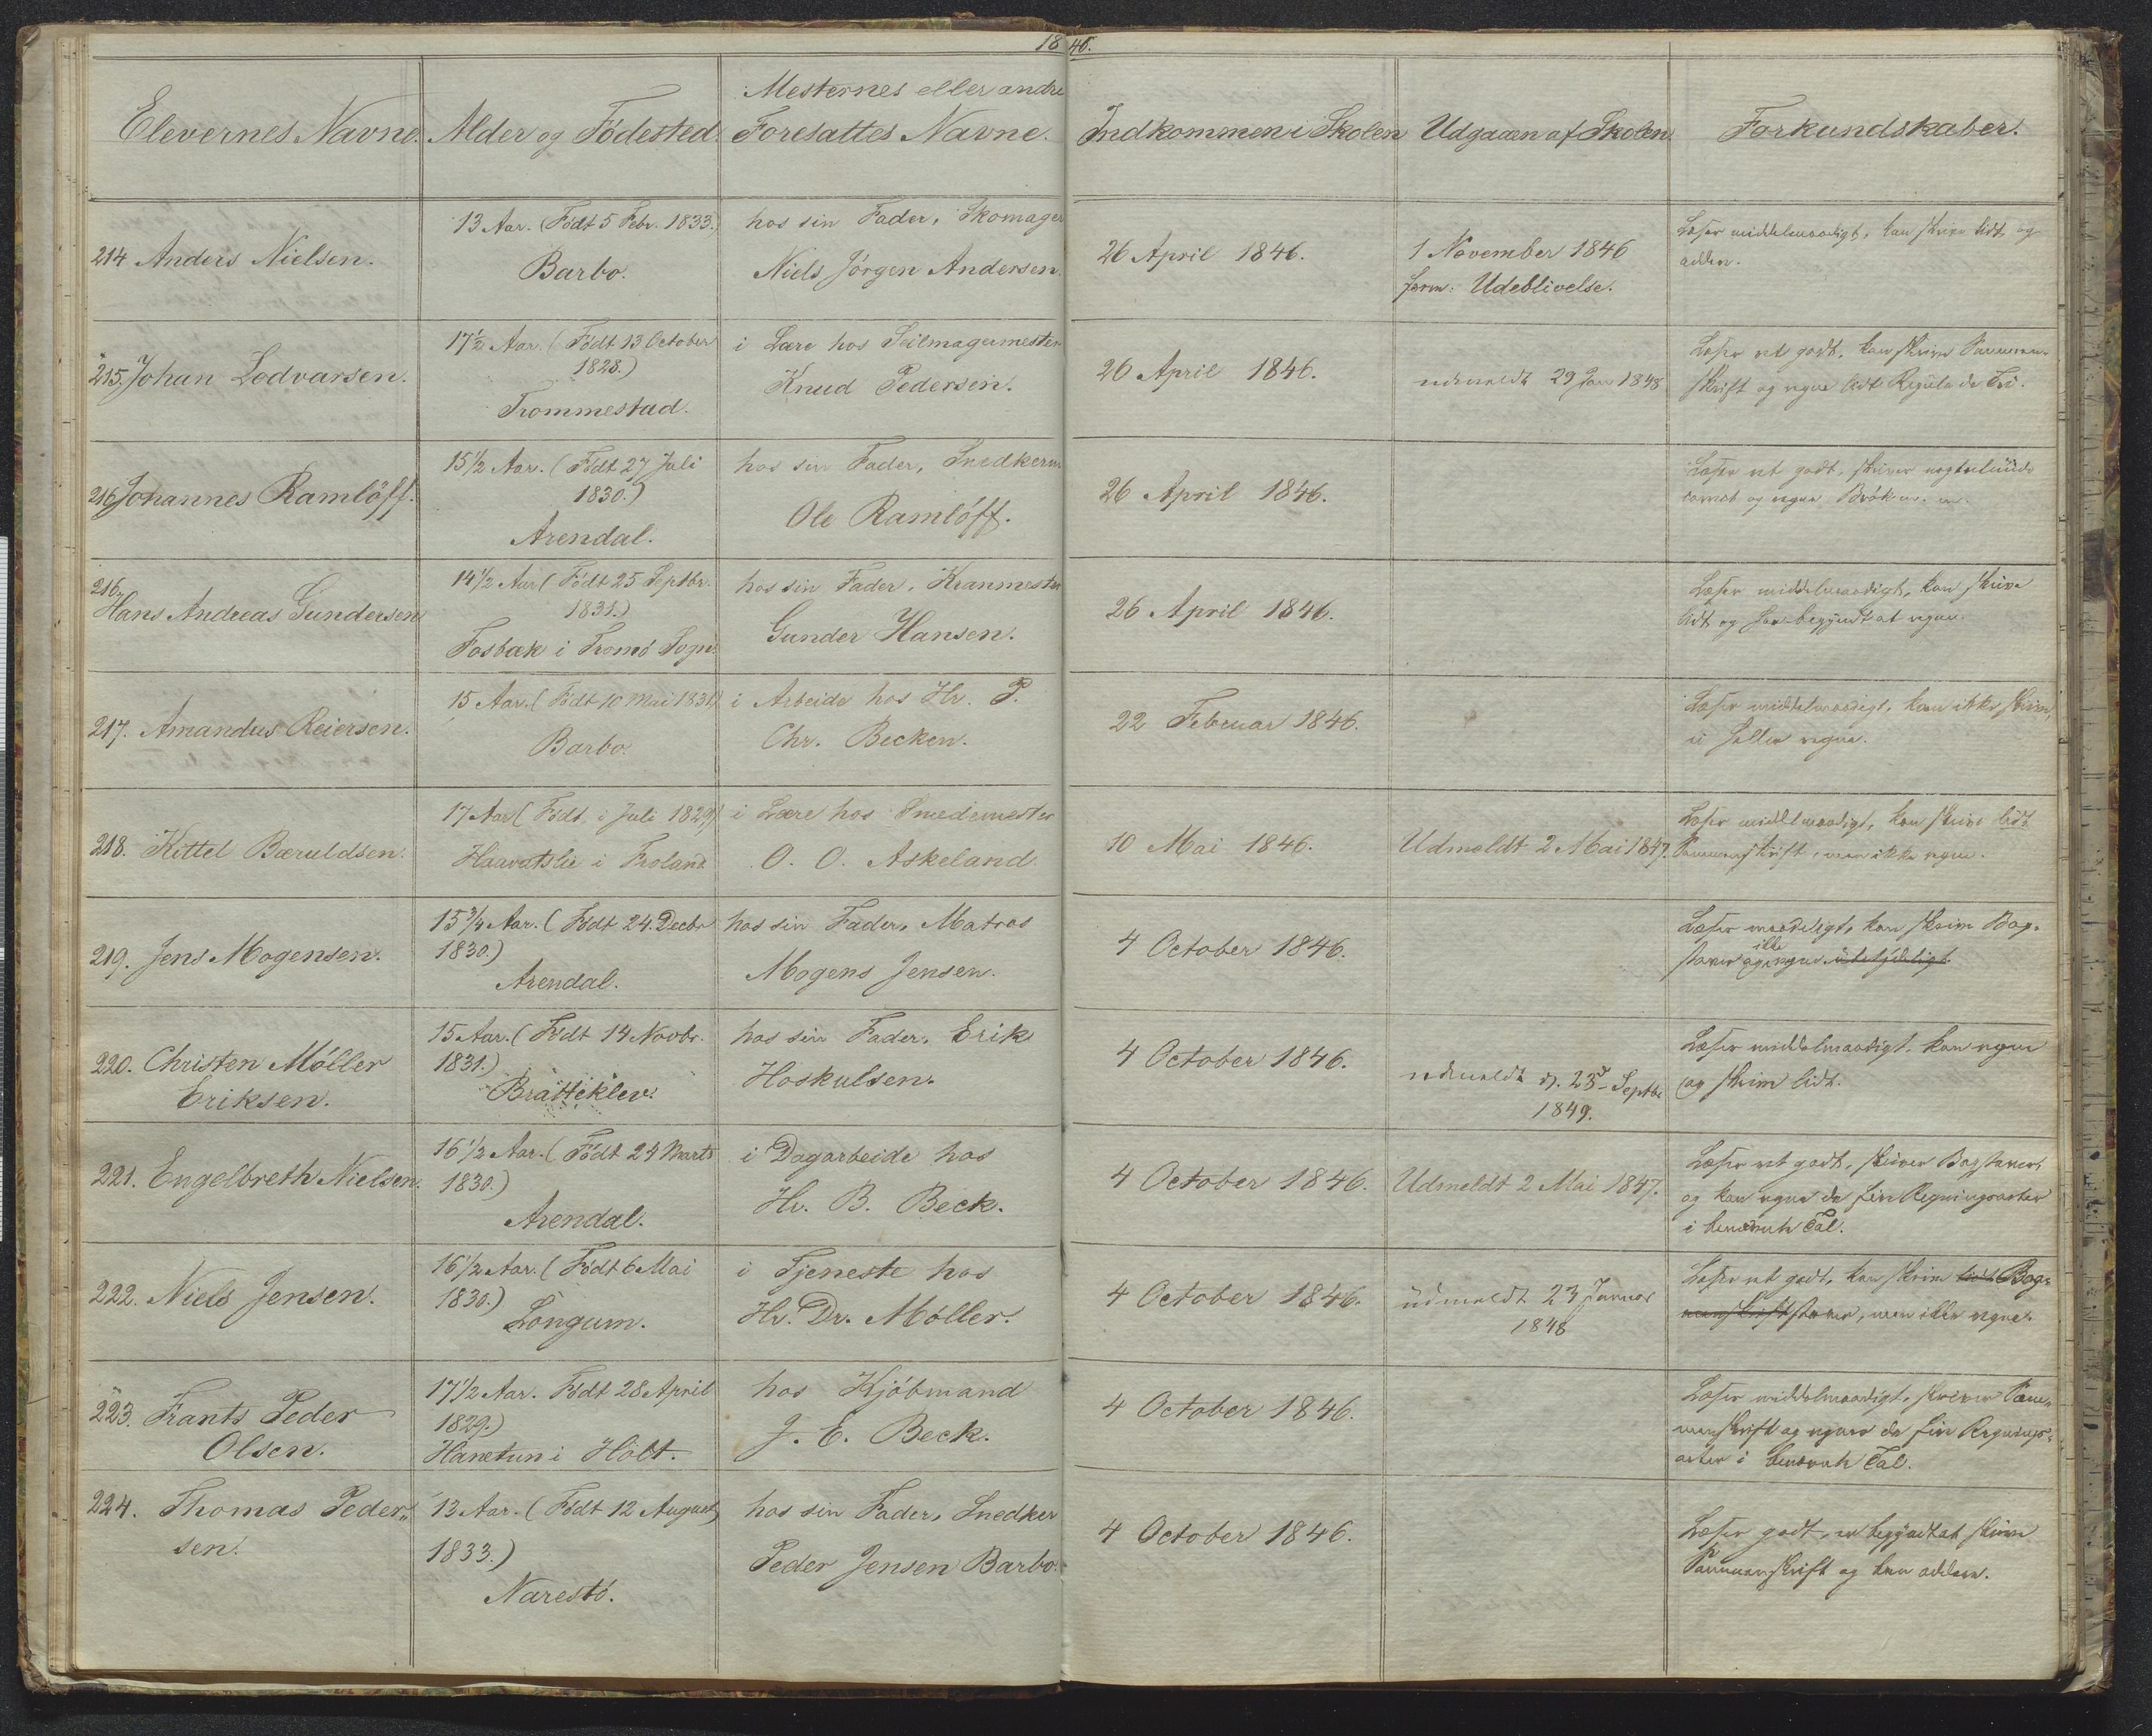 1846.
Elevernes Navne.
Alder og Födested.
Mesternes eller andre
Foresattes Navne.
Indkommen i Skolen
Udgaaen af Skolen.
Forkundskaber.
214 Anders Nielsen.
13 Aar. (Födt 5 Febr. 1833.)
Barbo.
hos sin Fader, Skomager
Niels Jörgen Andersen.
26 April 1846.
1 November 1846
form. Udeblivelse.
Læser middelmaadigt, kan skrive lidt og
addere.
215. Johan Lodvarsen.
17½ Aar. (Födt 13 October
1828.)
Trommestad.
i Lære hos Seilmagermester
Knud Pedersen.
26 April 1846.
udmeldt 29 Jan 1848
Læser ret godt, kan skrive Sammen-
skrift og regne lidt Regula de Tri.
216 Johannes Ramlöff.
15½ Aar. (Födt 27 Juli
1830.)
Arendal.
hos sin Fader, Snedkerm
Ole Ramlöff.
26 April 1846.
Læser ret godt, skriver
og regner Brök m. m.
216.
Hans Andreas Gundersen
14½ Aar (Födt 25 Septbr.
1831.)
Fosbæk i Tromö Sogn.
hos sin Fader, Kranmester
Gunder Hansen.
26 April 1846.
Læser middelmaadigt, kan skrive
lidt og har begyndt at regne.
217. Amandus Reiersen.
15 Aar. (Födt 10 Mai 1831)
Barbo.
i Arbeide hos Hr. P.
Chr. Becken.
22 Februar 1846.
Læser middelmaadigt, kan ikke skrive,
ei heller regne.
218. Kittel Bæruldsen.
17 Aar (Födt i Juli 1829)
Haavatslie i Froland
i Lære hos Smedemester
O. O. Askeland.
10 Mai 1846.
Udmeldt 2 Mai 1847.
Læser middelmaadigt, kan skrive lidt
Sammenskrift, men ikke regne.
219. Jens Mogensen.
15¾ Aar. (Födt 24. Decbr
1830.)
Arendal.
hos sin Fader, Matros
Mogens Jensen.
4 October 1846.
Læser maadeligt, kan skrive Bog-
staver og ikke regne ubetydeligt
220. Christen Möller
Eriksen.
15 Aar. (Födt 14 Novbr.
1831.)
Bratteklev.
hos sin Fader, Erik
Hoskulsen.
4 October 1846.
udmeldt d. 23d Septbr
1849.
Læser middelmaadigt, kan regne
og skrive lidt.
221. Engelbreth Nielsen.
16½ Aar. (Födt 24 Marts
1830.)
Arendal.
i Dagarbeide hos
Hr. B. Beck.
4 October 1846.
Udmeldt 2 Mai 1847.
Læser ret godt, skriver Bogstaver,
og kan regne de fire Regningsarter
i benævnte Tal.
222. Niels Jensen.
16½ Aar. (Födt 6 Mai
1830.)
Longum.
i Tjeneste hos
Hr. Dr. Möller.
4 October 1846.
udmeldt 23 Januar
1848
Læser ret godt, kan skrive lidt Bog-
menskrift staver, men ikke regne.
223. Frants Peder
Olsen.
17½ Aar. Födt 28 April
1829.)
Hanetun i Holt.
hos Kjöbmand
J. E. Beck.
4 October 1846.
Læser middelmaadigt, skriver Sam-
menskrift og regner de fire Regnings-
arter i benævnte Tal.
224. Thomas Peder-
sen.
13 Aar. (Födt 12 August
1833.)
Narestö.
hos sin Fader, Snedker
Peder Jensen Barbo.
4 October 1846.
Læser godt, er begyndt at skrive
Sammenskrift og kan addere.